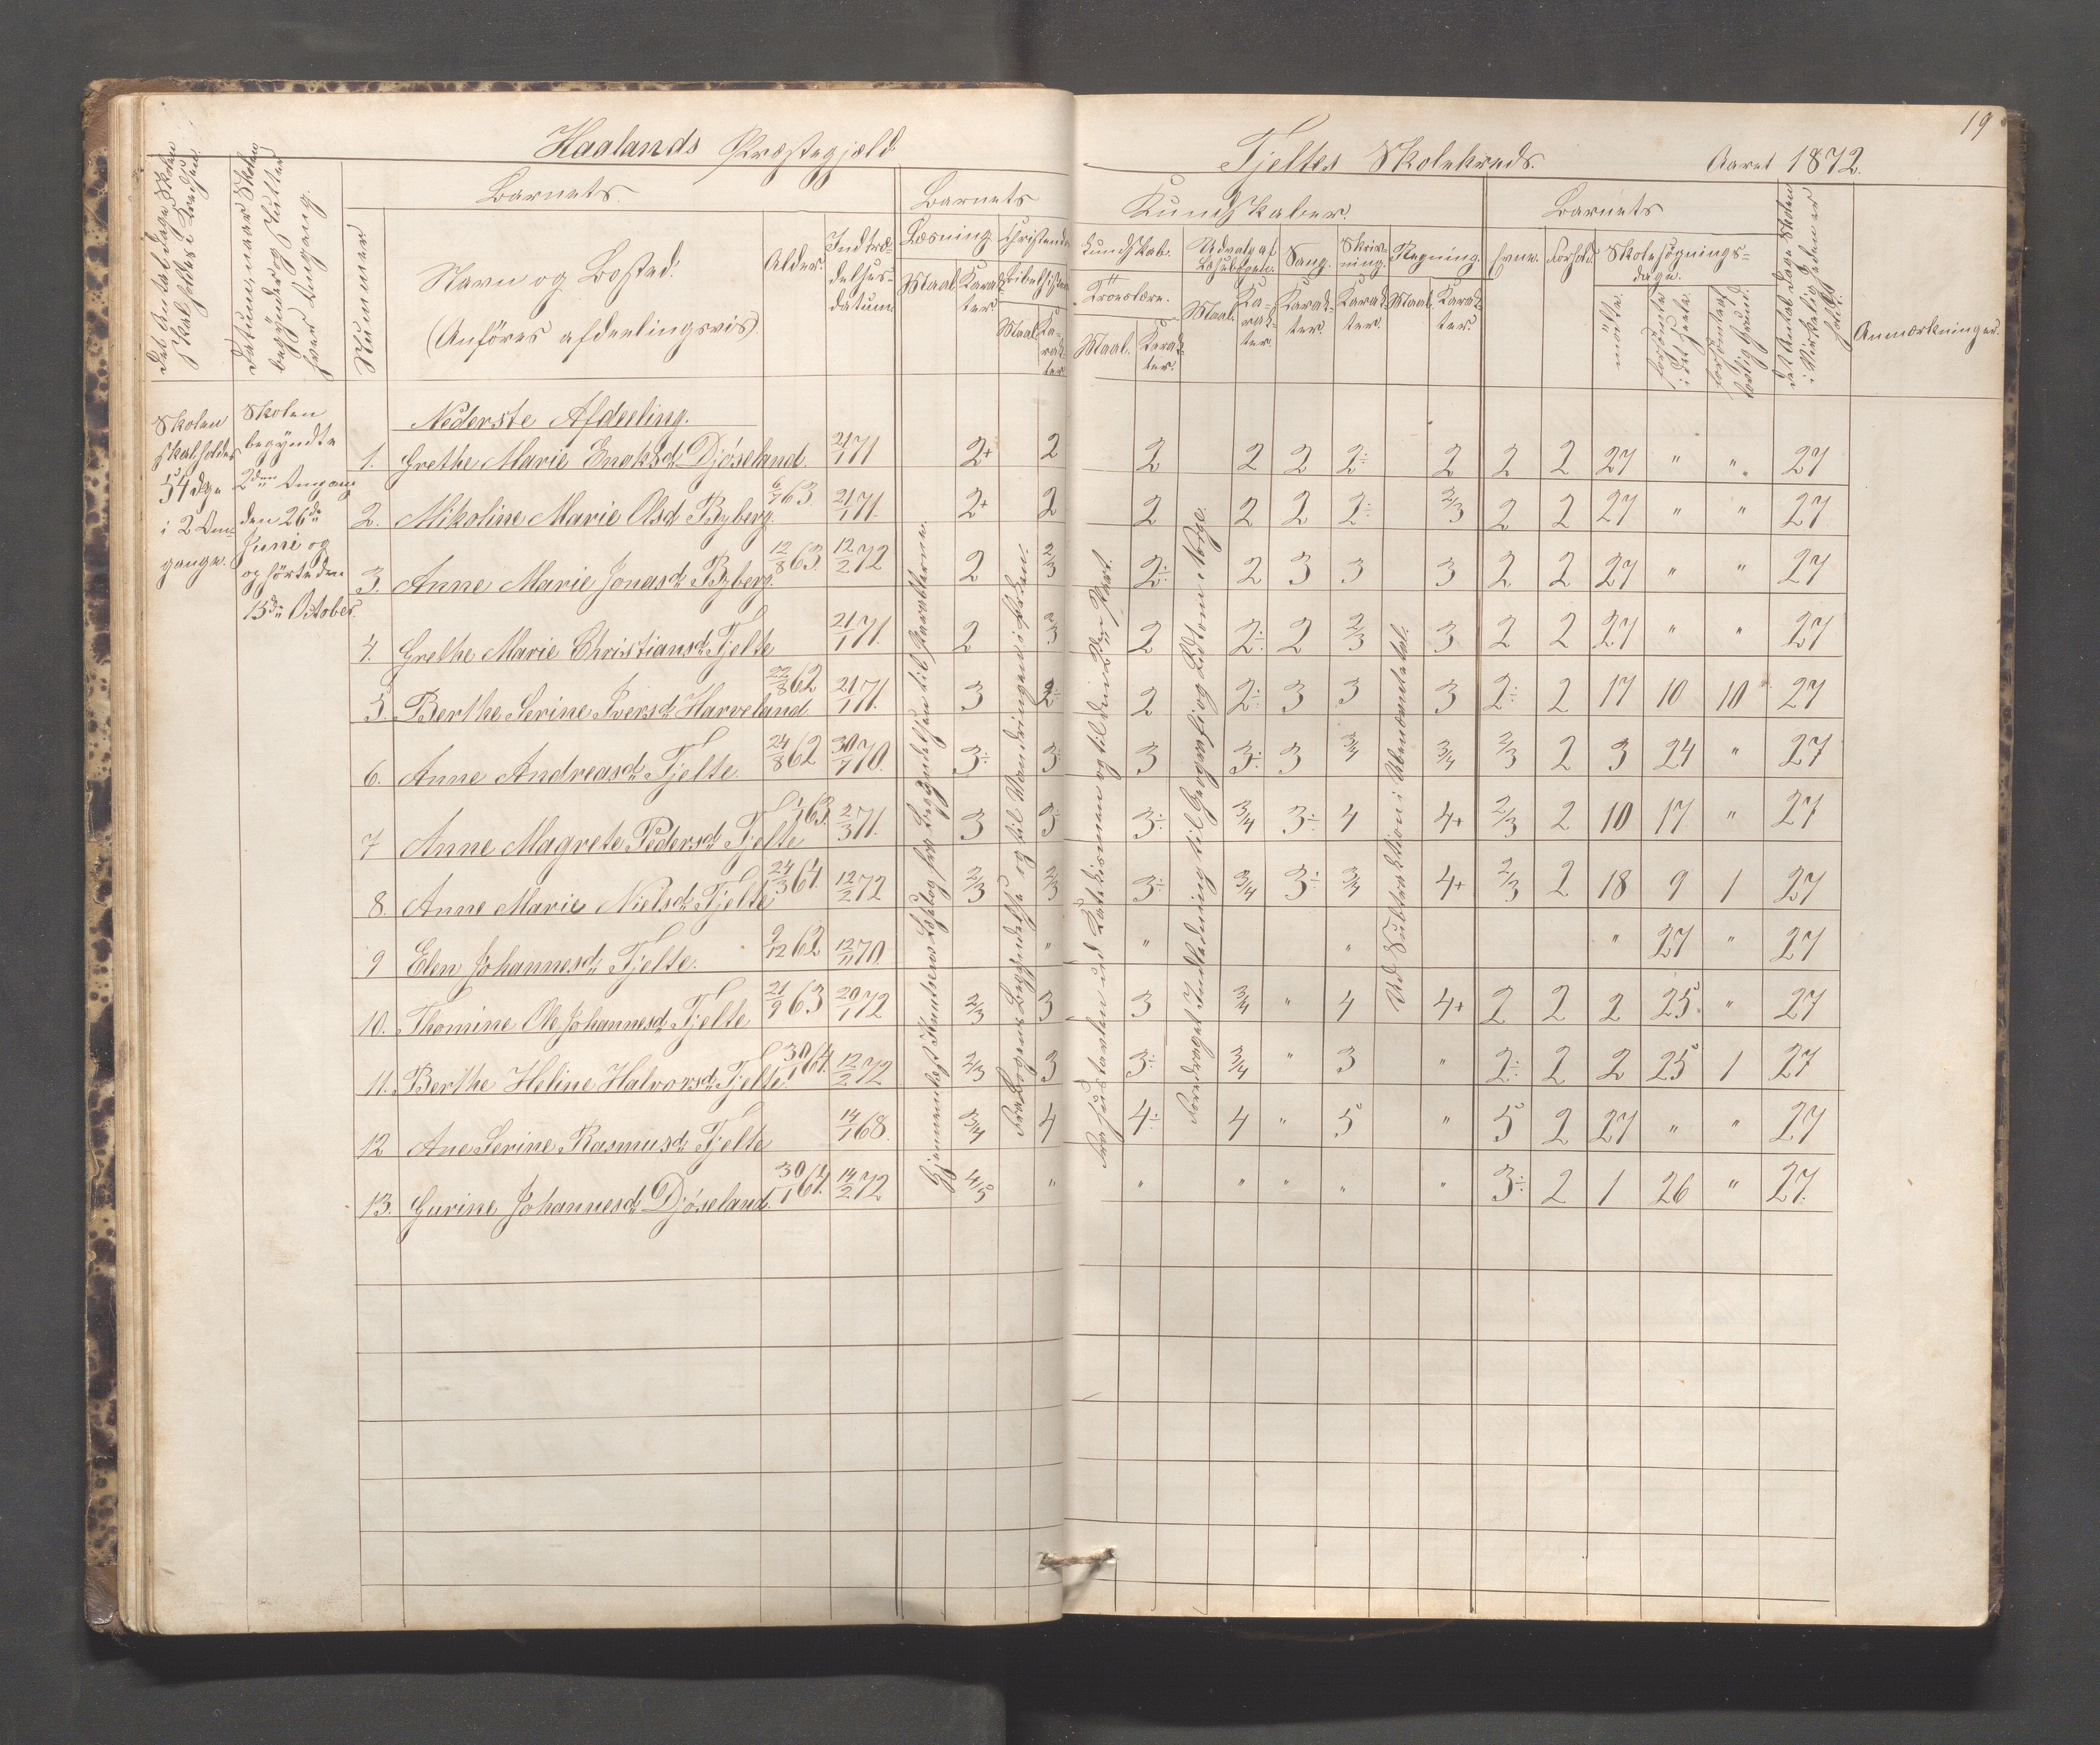 19
Haalands Præstegjæld
Tjeltes Skolekreds. Aaret 1872.
Det Antal Dage Skolen skal holdes i Kredsen.
Datum, naar Skolen begynder og slutter hver Omgang.
Nummer
Barnets
Navn og Bosted.
(Anføres afdeelingsvis).
Alder.
Indtrædelses-datum
Barnets
Kundskaber.
Læsning
Maal.
Karakter.
Christendomskundskab.
Bibelhistorie
Maal.
Karakter.
Troeslære.
Maal.
Karakter.
Udvalg af Læsebogen.
Maal.
Karakter.
Sang.
Karakter.
Skrivning.
Karakter.
Regning.
Maal.
Karakter.
Barnets
Evne.
Forhold.
Skolesøgningsdage.
mødte.
forsømte i det Hele.
forsømte af lovlig Grund.
Det Antal Dage Skolen i Virkeligheden er holdt.
Anmærkninger.
Skolen skal holdes 54 Dge i 2 Omgange.
Skolen begyndte 2den Omgang den 26de Juni og ophørte den 15de October.
Nederste Afdeeling.
1. Grethe Marie Enoksd. Djøseland. 21/1 71 2+ 2 2 2 2 2÷ 2 2 2 27 " " 27
2. Nikoline Marie Olsd. Byberg. 6/7 63. 21/1 71. 2+ 2 2 2 2 2÷ 2/3 2 2 27 " " 27
3. Anne Marie Jonasd. Byberg. 12/8 63. 12/2 72 2 2/3 2÷ 2 3 3 3 2 2 27 " " 27
4. Grethe Marie Christiansd. Tjelte 21/1 71. 2 2/3 2 2÷ 2 2/3 3 2 2 27 " " 27
5. Berthe Serine Iversd. Harveland 22/8 62 21/1 71. 3 2÷ 2 2÷ 3 3 3 2÷ 2 17 10 10 27
6. Anne Andreasd. Tjelte 24/8 62 30/7 70. 3÷ 3÷ 3 3÷ 3 3/4 3/4 2/3 2 3 24 " 27
7 Anne Magrete Pedersd. Tjelte 63. 2/3 71. 3 3÷ 3÷ 3/4 3÷ 4 4+ 2/3 2 10 17 " 27
8. Anne Marie Nielsd. Tjelte 24/3 64. 12/2 72 2/3 2/3 3÷ 3/4 3÷ 3/4 4+ 2/3 2 18 9 1 27
9 Elen Johannesd. Tjelte. 9/12 62 12/11 70. " " " " 27 " 27
10. Thomine Ole Johannesd. Tjelte 21/9 63 20/1 72 2/3 3 3 3/4 " 4 4+ 2 2 2 25 " 27
11. Berthe Heline Halvorsd. Tjelte. 30/1 64. 12/2 72 2/3 3 3÷ 3/4 " 3 " 2÷ 2 2 25 1 27
12 Ane Serine Rasmusd. Tjelte 14/1 68. 3/4 4 4÷ 4 " 5 " 5 2 27 " " 27
13. Gurine Johannesd. Djøseland. 30/1 64. 14/2 72 4/5 " " " " " " 3÷ 2 1 26 " 27.
Fra Bogens Begyndelse og til Vandringen i Ørken.
Foredraget Indledning til Geografi og Lidt om Norge.
Ud Subtraktion i Ubenævnte tal.